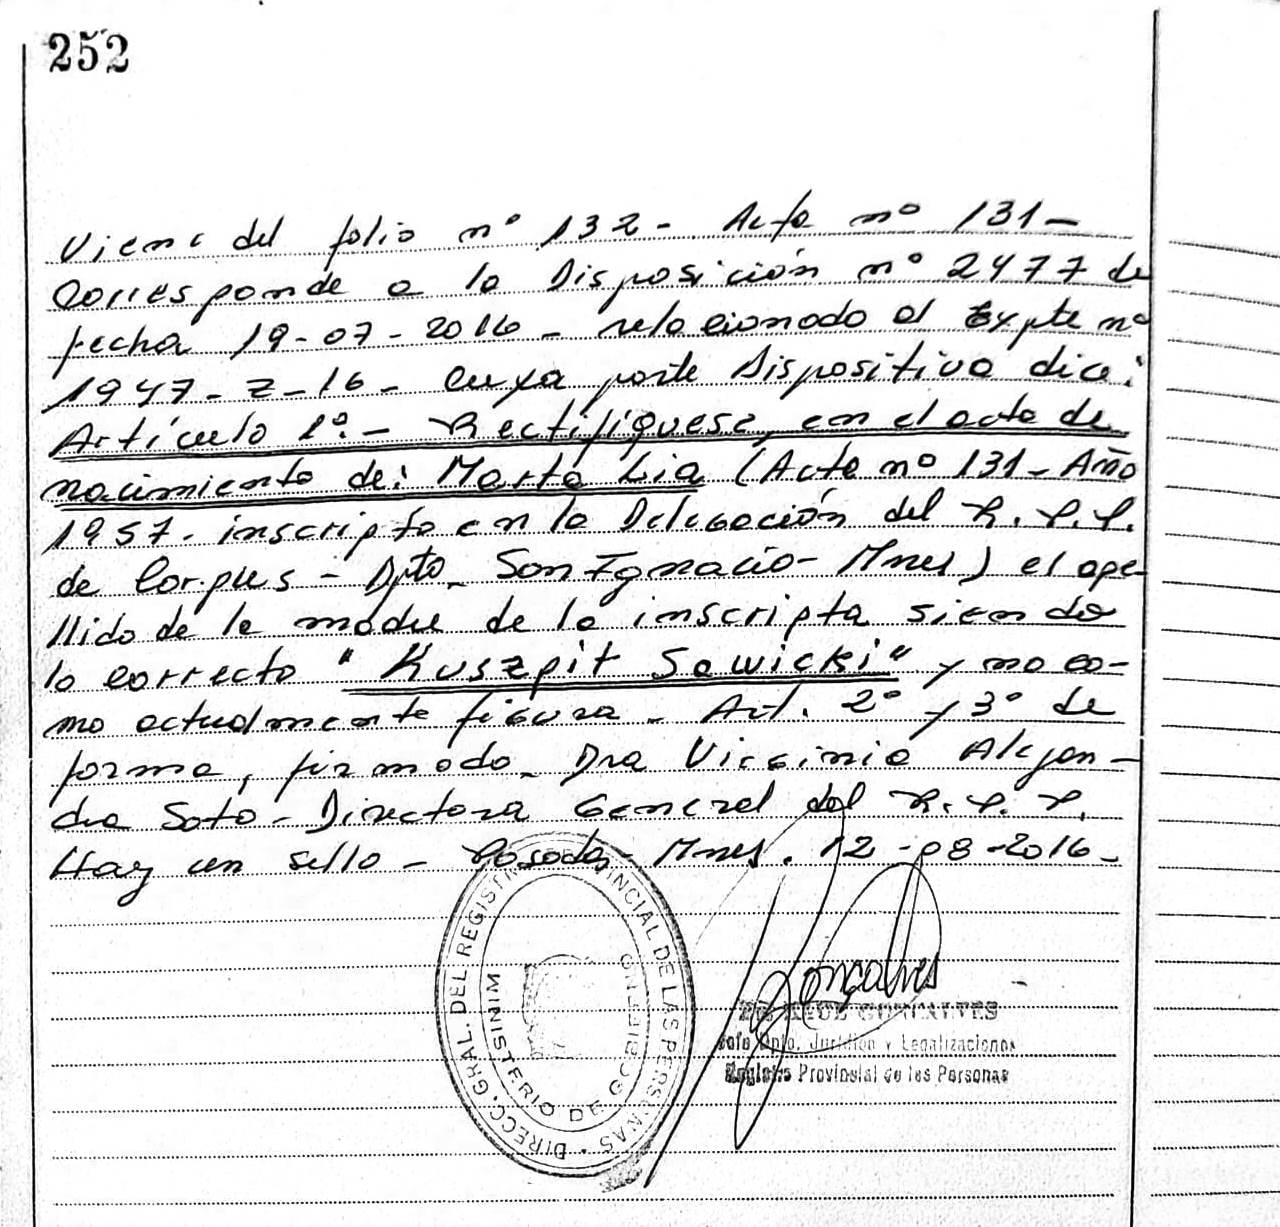 252
Viene del folio nº 132 - Acta nº 131 -
Corresponde a la Disposición nº 2477 de
fecha 19-07-2016 - relacionado al Expte nº
1947 - Z - 16 - Cuya parte Dispositiva dice:
Artículo 1º. - Rectifíquese, en el acta de
nacimiento de: Marta Lia (Acta nº 131 - Año
1957. inscripta en la Delegación del R. P. P.
de Corpus - Dpto. San Ignacio - Mnes) el ape-
llido de la madre de la inscripta siendo
lo correcto "Kuszpit Sawicki" y no co-
mo actualmente figura - Art. 2º y 3º de
forma, firmado. Dra Virginia Alejan-
dra Soto - Directora General del R. P. P.
Hay un sello - Posadas Mnes. 12 - 08 - 2016 -
DIRECC. GRAL. DEL REGISTRO PROVINCIAL DE LAS PERSONAS
MINISTERIO DE GOBIERNO
Gonçalves
GONCALVES
Jefe Dpto. Jurídico y Legalizaciones
Registro Provincial de las Personas